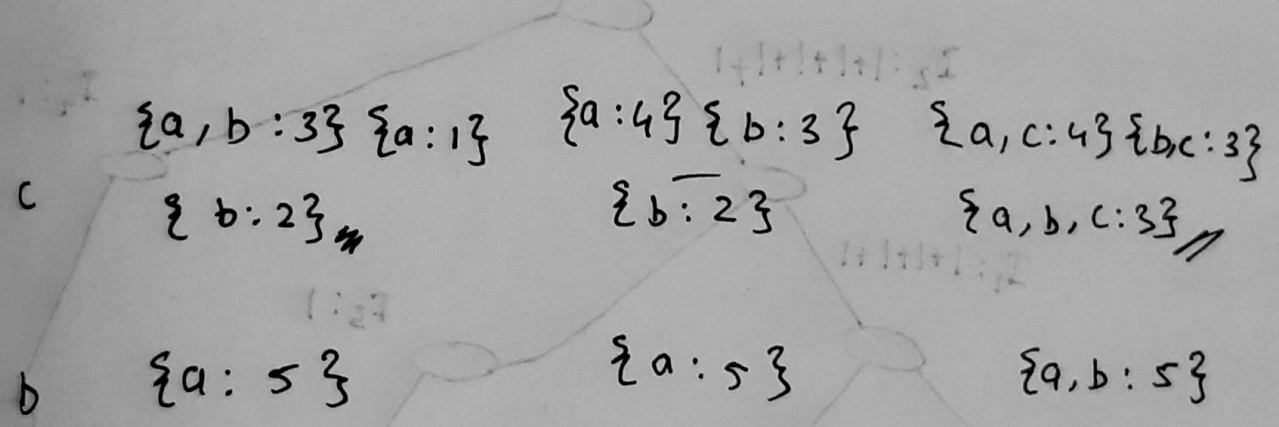 {a, b : 3} {a : 1} {a : 4} {b : 3} {a, c : 4} {b,c : 3}
c {b : 2} {b : 2} {a, b, c : 3}
b {a : 5} {a : 5} {a, b : 5}